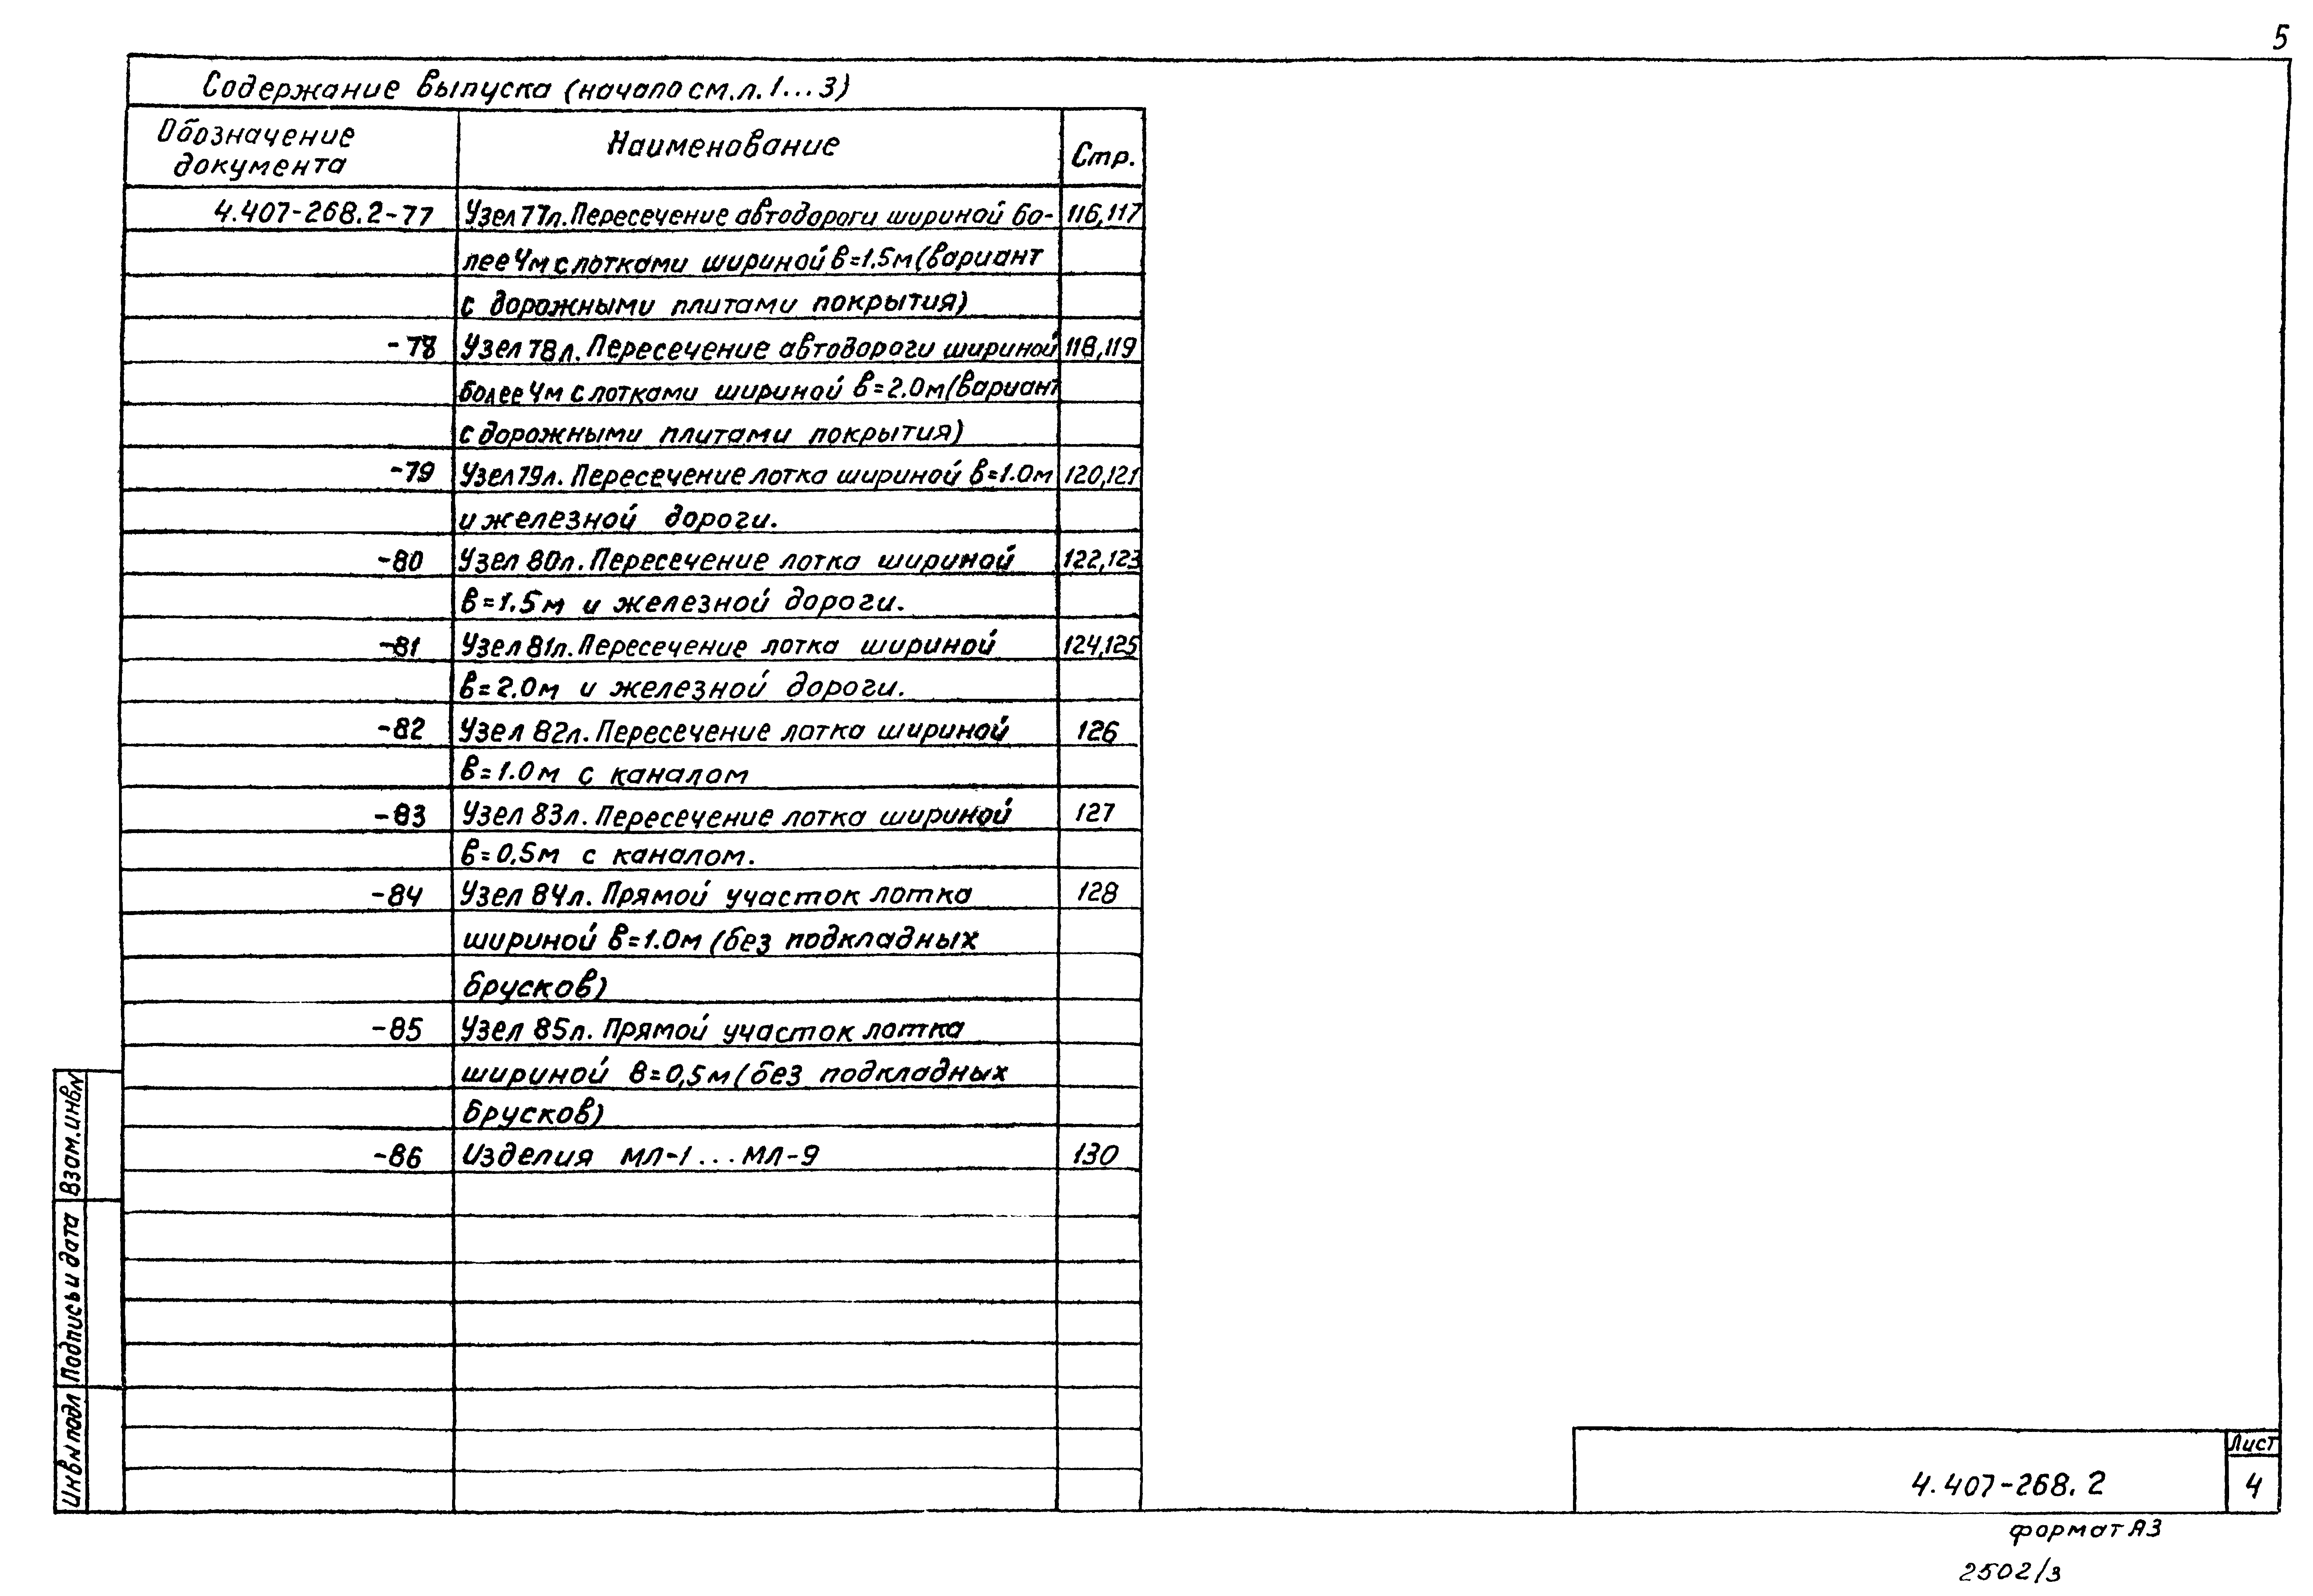 5
Содержание выпуска (начало см.л.1...3)
Обозначение документа Наименование Стр.
4.407-268.2-77 Узел 77л. Пересечение автодороги шириной бо- 116,117
лее 4м с лотками шириной в=1.5м (вариант
с дорожными плитами покрытия)
-78 Узел 78л. Пересечение автодороги шириной 118,119
более 4м с лотками шириной в=2.0м (вариант
с дорожными плитами покрытия)
-79 Узел 79л. Пересечение лотка шириной в=1.0м 120,121
и железной дороги.
-80 Узел 80л. Пересечение лотка шириной 122,123
в=1.5м и железной дороги.
-81 Узел 81л. Пересечение лотка шириной 124,125
в=2.0м и железной дороги.
-82 Узел 82л. Пересечение лотка шириной 126
в=1.0м с каналом
-83 Узел 83л. Пересечение лотка шириной 127
в=0,5м с каналом.
-84 Узел 84л. Прямой участок лотка 128
шириной в=1.0м (без подкладных
брусков)
-85 Узел 85л. Прямой участок лотка
шириной в=0,5м (без подкладных
брусков)
-86 Изделия МЛ-1...МЛ-9 130
Взам.инв.№
Подпись и дата
Инв№подл
4.407-268.2
Лист
4
формат А3
2502/3